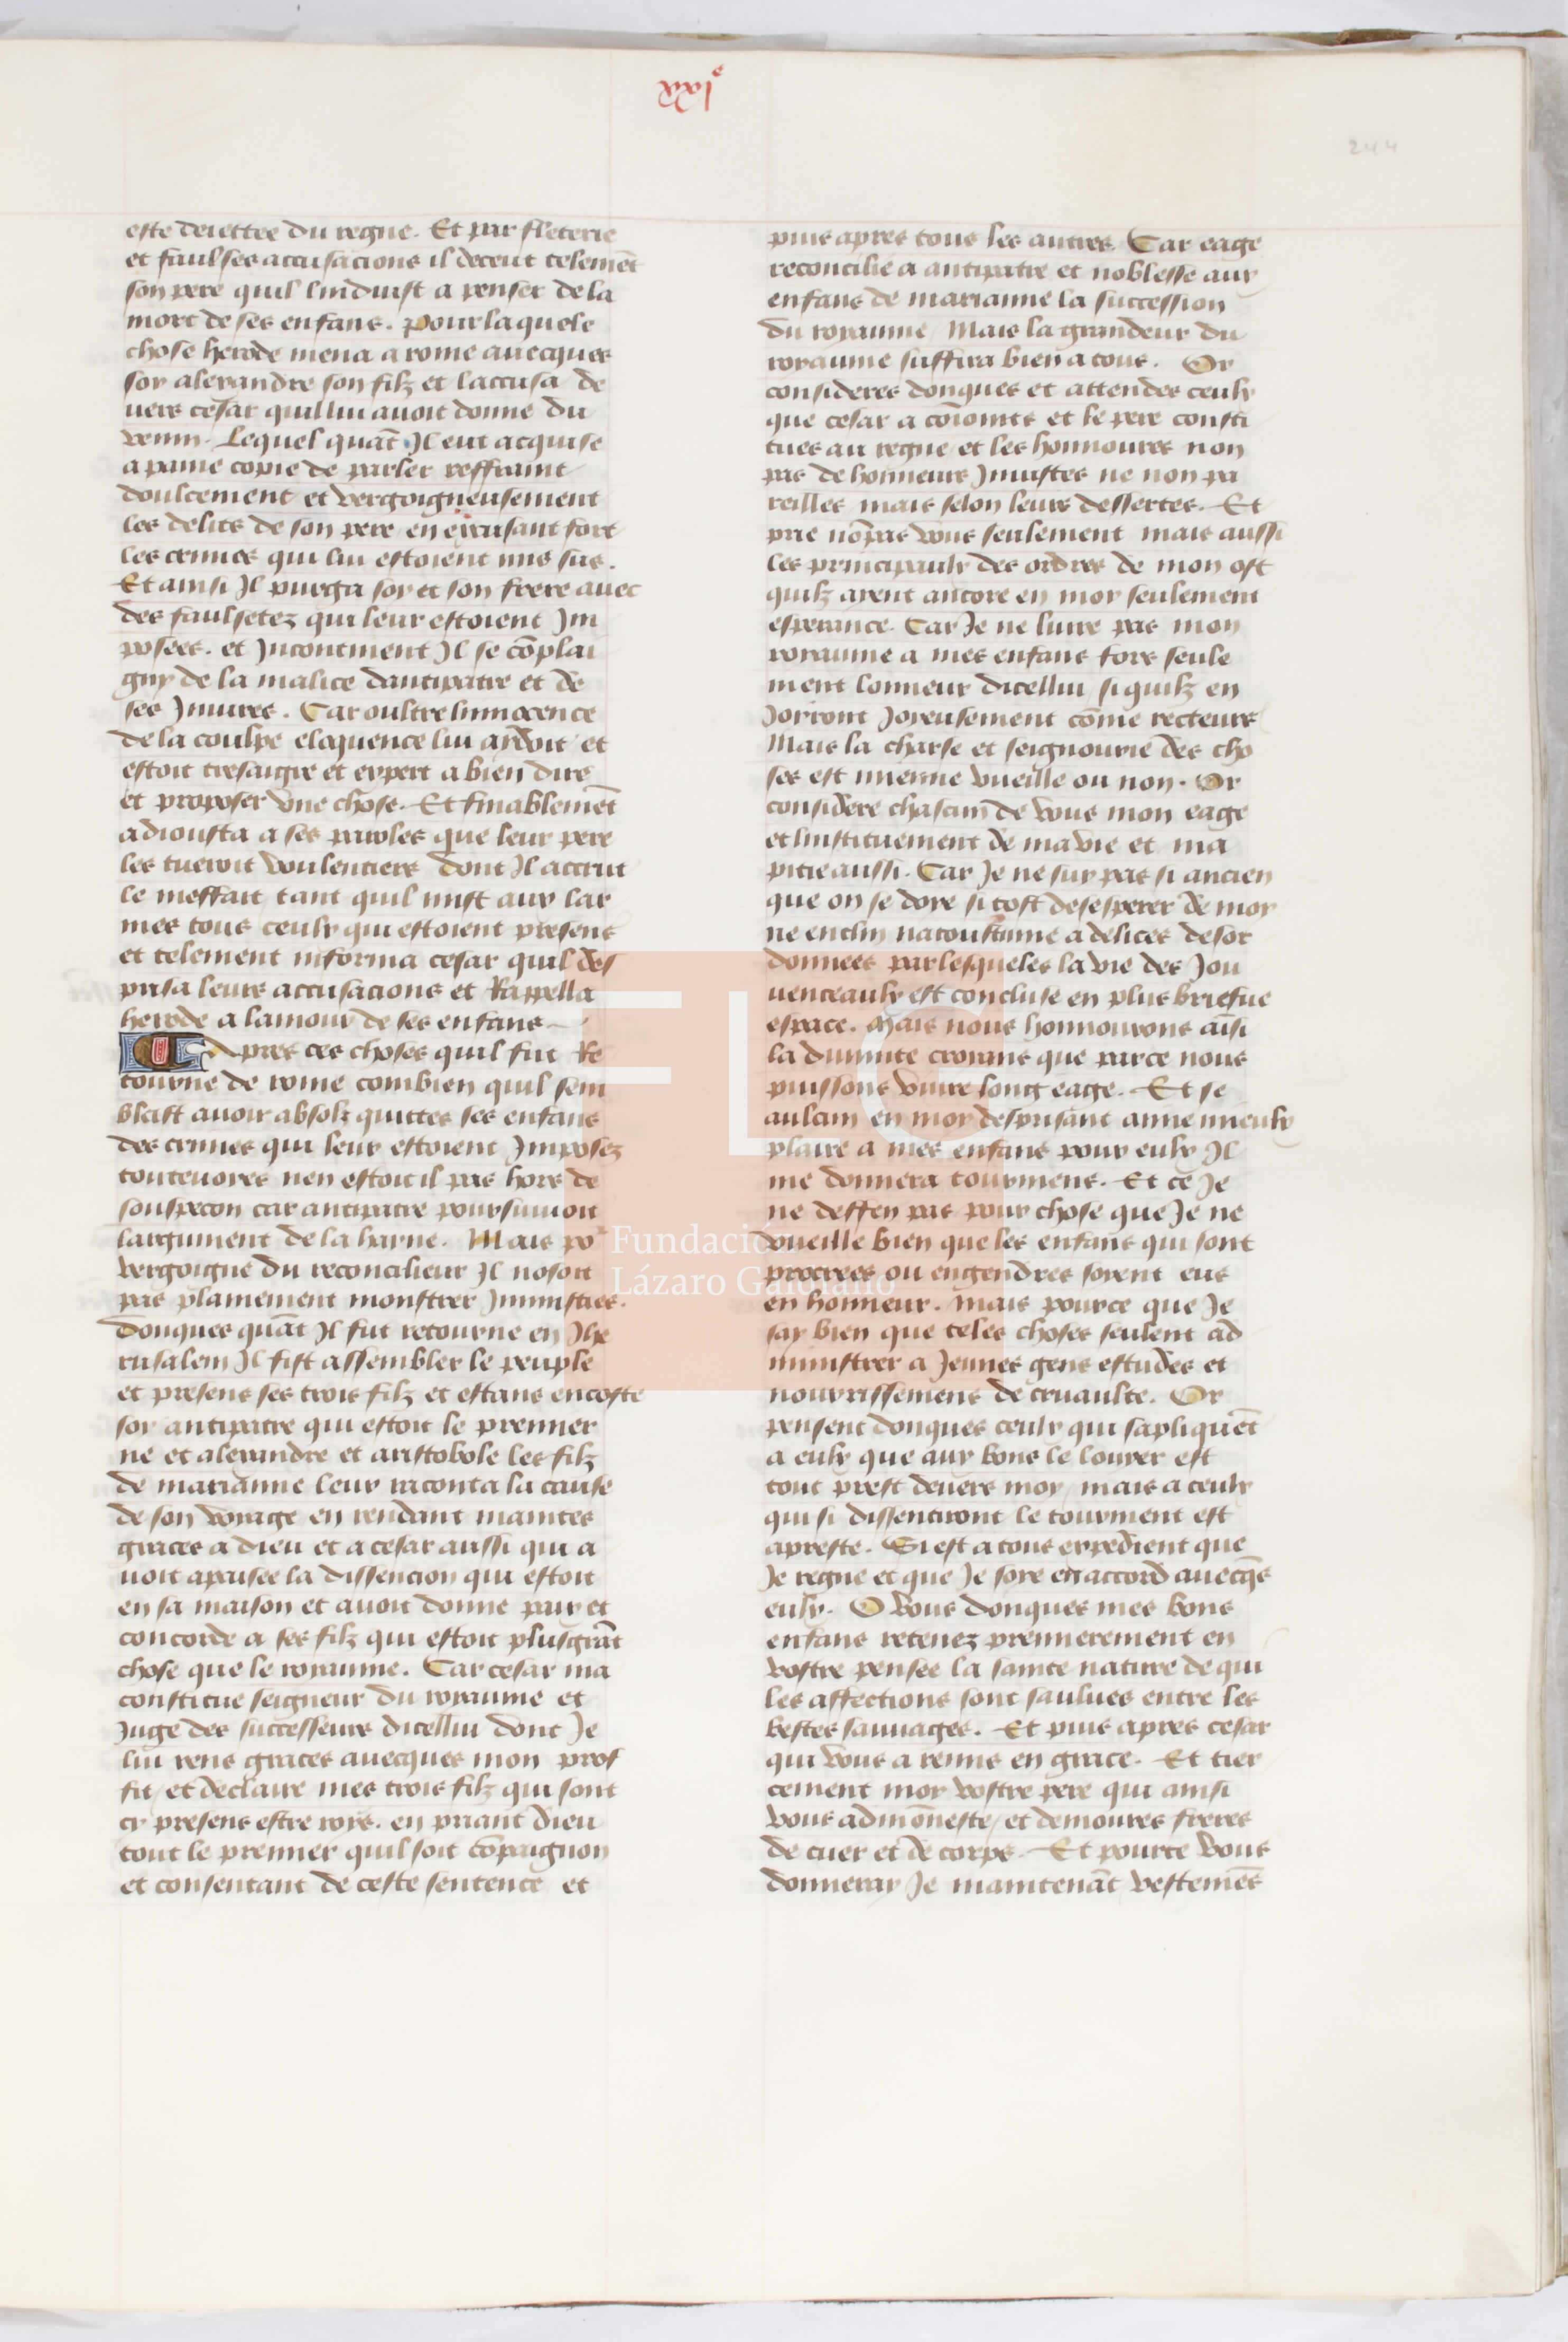 xxxl^e
244
este deiettee du regne. Et par flaterie
et faulses accusacions il deceut telemēt
son pere quil linduist a penser de la
mort de ses enfans. pour laquele
chose herode mena a rome auecques
soy alexandre son filz et laccusa de
uers cesar quil lui auoit donne du
venin. Lequel quāt Il eut acquise
a paine copie de parler reffraint
doulcement et vergoigneusement
les delits de son pere en excusant fort
les crimes qui lui estoient mis sus.
Et ainsi Il purga soy et son frere auec
des faulsetez qui leur estoient Im
posees. et Incontinent Il se cōplai
gny de la malice dantipatre et de
ses Iniures. Car oultre linnocence
de la coulpe eloquence lui aydoit et
estoit tresaigre et expert a bien dire
et proposer vne chose. Et finablemēt
adiousta a ses paroles que leur pere
les tueroit voulentiers dont Il accrut
le meffait tant quil mist aux lar
mes tous ceulx qui estoient presens
et telement informa cesar quil des
prisa leurs accusacions et Rappella
herode a lamour de ses enfans
Apres ces choses quil fut Re
tourne de rome combien quil sem
blast auoir absolz quittes ses enfans
des crimes qui leur estoient Imposez
toutevoies nen estoit il pas hors de
souspecon car antipatre poursuiuoit
largument de la hayne. Mais po^r
vergoigne du reconcilieur Il nosoit
pas plainement monstrer Inimisties.
Donques quāt Il fut retourne en Ihe
rusalem Il fist assembler le peuple
et presens ses trois filz et estans encoste
soy antipatre qui estoit le premier
ne et alexandre et aristobole les filz
de marianne leur raconta la cause
de son voyage en rendant maintes
graces a dieu et a cesar aussi qui a
uoit apaisee la dissencion qui estoit
en sa maison et auoit donne paix et
concorde a ses filz qui estoit plus grāt
chose que le royaume. Car cesar ma
constitue seigneur du royaume et
Juge des successeurs dicellui dont Je
lui rens graces auecques mon prof
fit et declaire mes trois filz qui sont
cy presens estre roys. en priant dieu
tout le premier quil soit cōpaignon
et consentant de ceste sentence et
puis apres tous les autres. Car eage
reconcilie a antipatre et noblesse aux
enfans de marianne la succession
du royaume Mais la grandeur du
royaume suffira bien a tous. Or
consideres donques et attendes ceulx
que cesar a cōioints et le pere consti
tues au regne et les honnoures non
pas de honneurs Iniustes ne non pa
reilles mais selon leurs dessertes. Et
prie nōpas vous seulement mais aussi
les principaulx des ordres de mon ost
quilz ayent ancore en moy seulement
esperance. Car Je ne liure pas mon
royaume a mes enfans fors seule
ment lonneur dicellui si quilz en
Joyront Joyeusement cōme recteurs
Mais la charse et seignourie des cho
ses est mienne vueille ou non. Or
considere chascun de vous mon eage
et linstituement de ma vie et ma
pitie aussi. Car Je ne suy pas si ancien
que on se doye si tost desesperer de moy
ne enclin nacoustume a delices desor
donnees par lesqueles la vie des Jou
uenceaulx est concluse en plus briefue
espace. Mais nous honnourons aīsi
la diuinite croyans que parce nous
puissons viure long eage. Et se
aulcun en moy desprisant ayme mieulx
plaire a mes enfans pour eulx Il
me donnera tourmens. Et ce Je
ne deffen pas pour chose que Je ne
vueille bien que les enfans qui sont
procrees ou engendres soyent eus
en honneur. Mais pource que Je
say bien que teles choses seulent ad
ministrer a Jeunes gens estudes et
nourrissemens de cruaulte. Or
pensent donques ceulx qui sapliquēt
a eulx que aux bons le louyer est
tout prest deuers moy mais a ceulx
qui si dissentiront le tourment est
apreste. Si est a tous expedient que
Je regne et que Je soye en accord auecq̄s
eulx. O vous donques mes bons
enfans retenez premierement en
vostre pensee la sainte nature de qui
les affections sont saulues entre les
bestes sauuages. Et puis apres cesar
qui vous a remis en grace. Et tier
cement moy vostre pere qui ainsi
vous admōneste et demoures freres
de cuer et de corps. Et pource vous
donneray Je maintenāt vestemēs
Fundación
Lázaro Galdiano
FLG